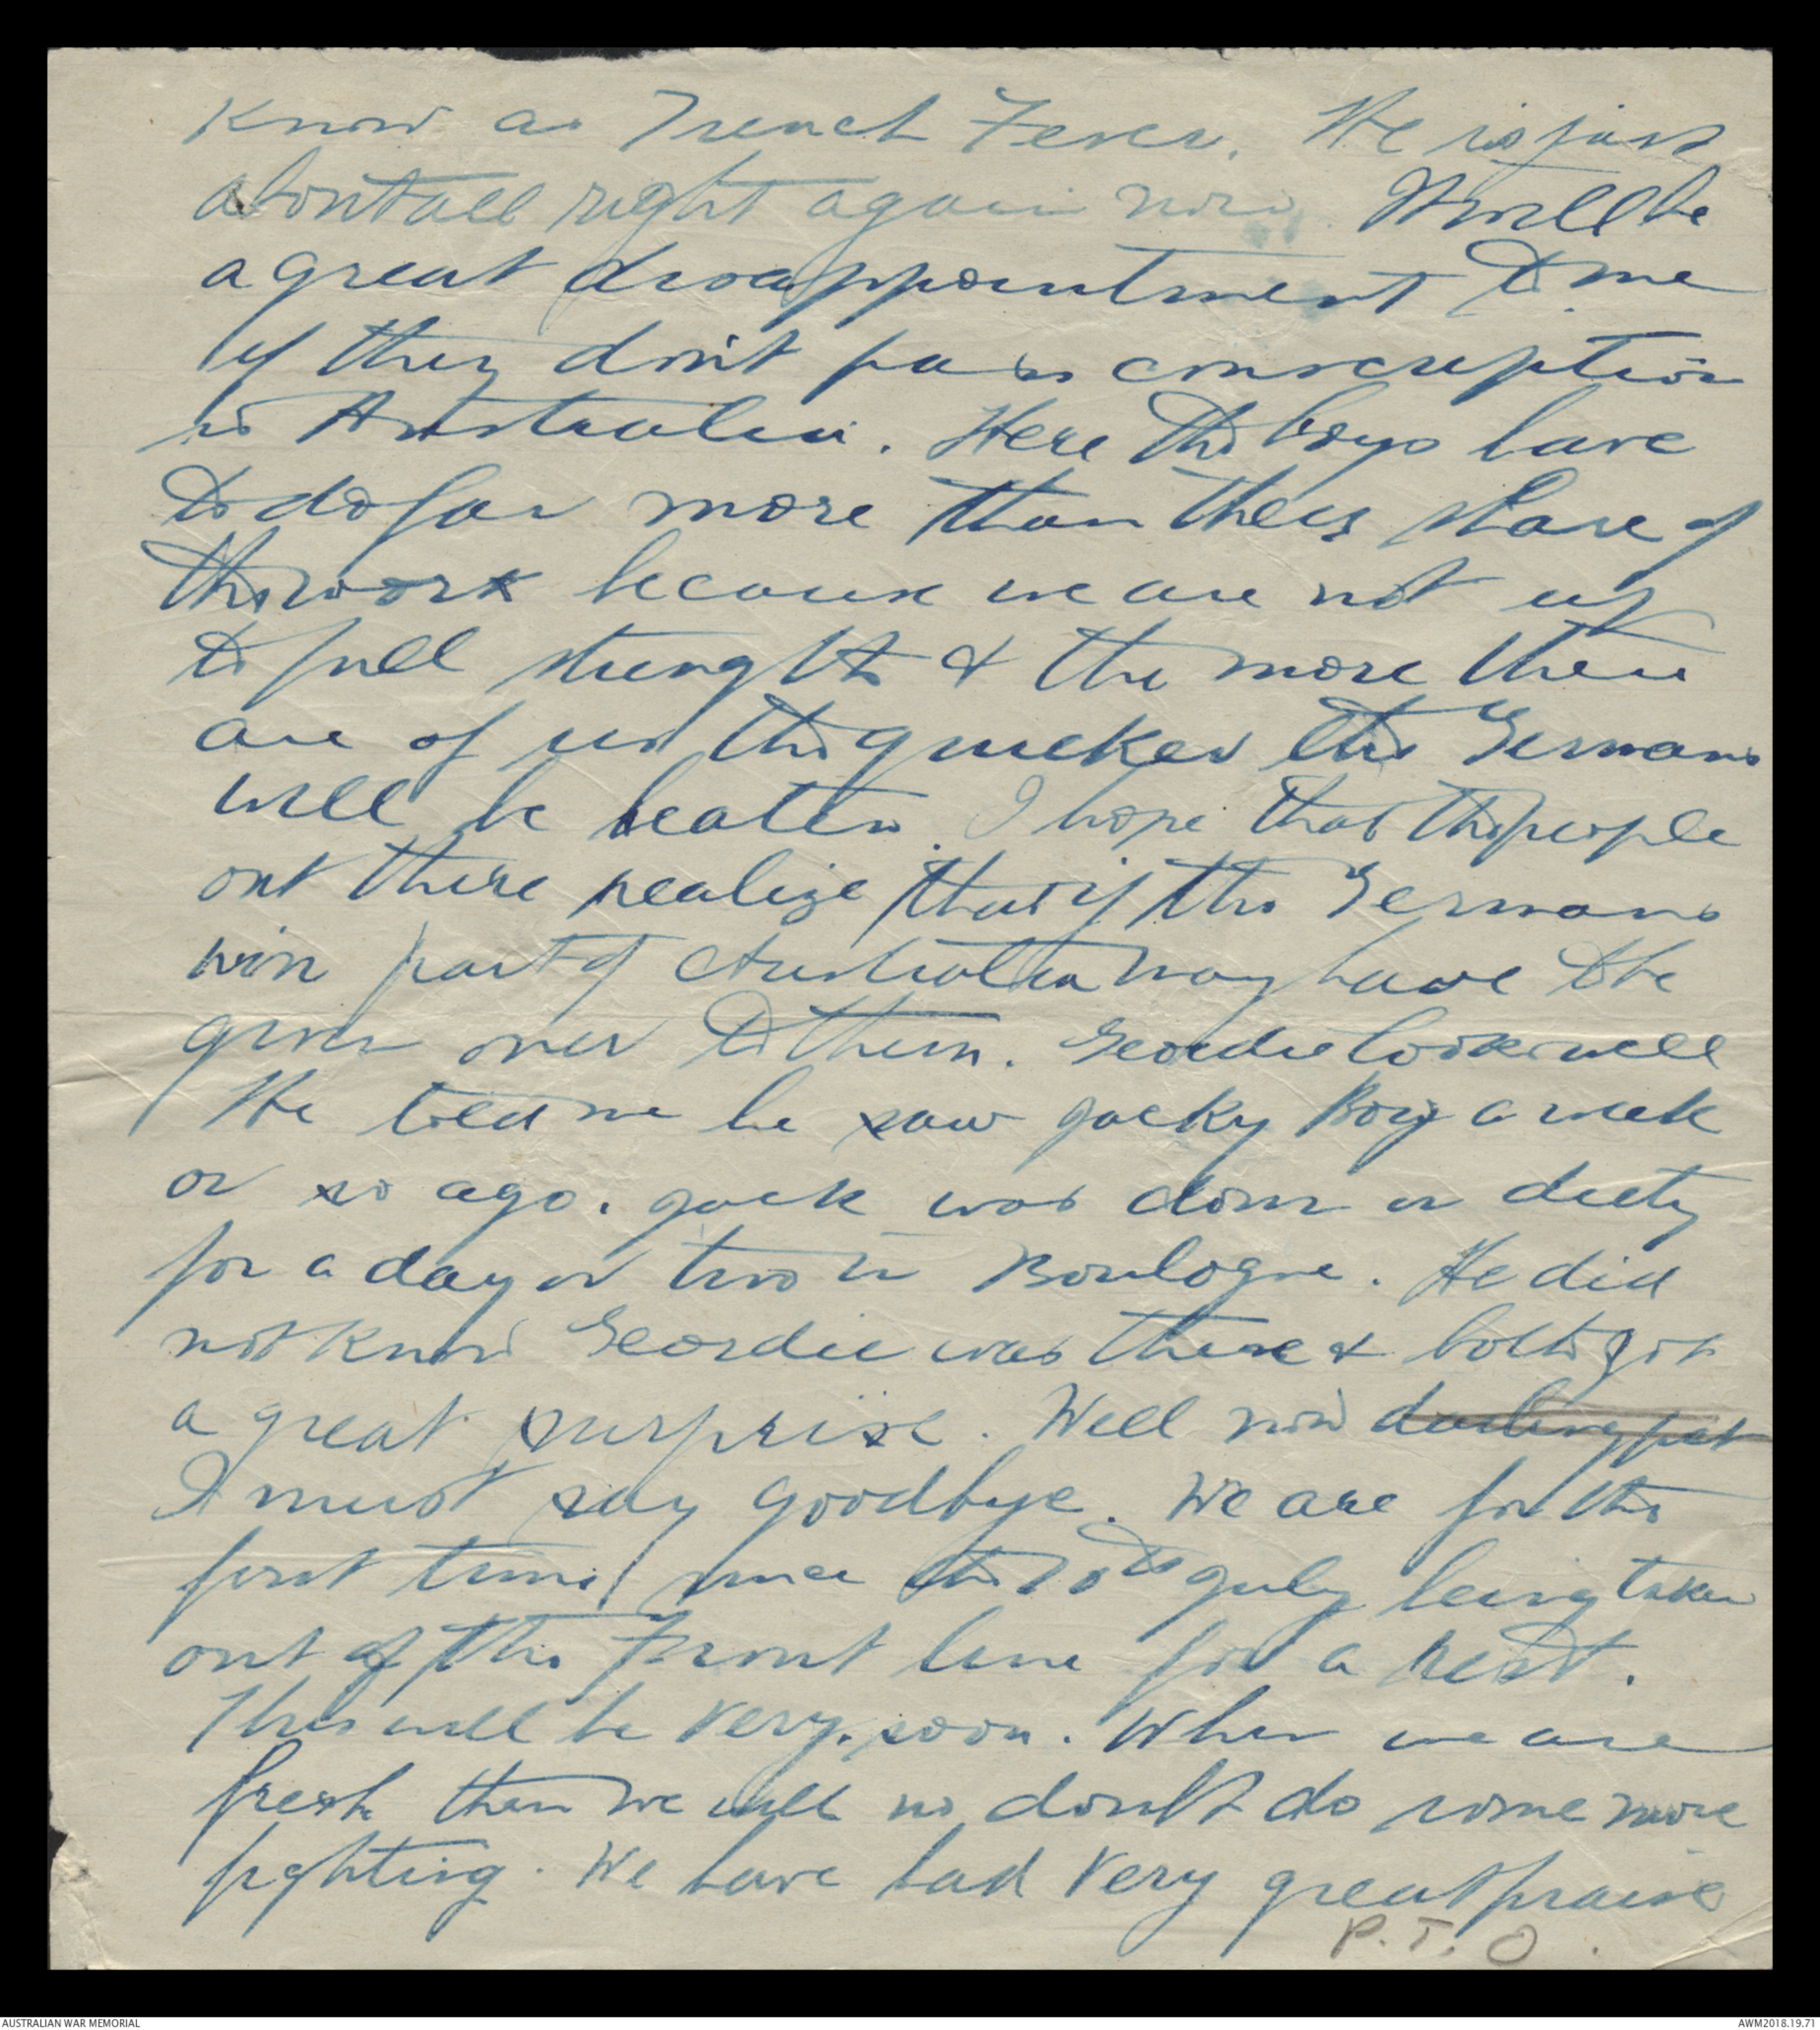 know as Trench Fever. He is just
about all right again now. It will be
a great disappointment to me
if they don't pass conscription
in Australia. Here the boys have
to do far more than their share of
the work because we are not up
to full strength & the more there
are of us the quicker the Germans
will be beaten. I hope that the people
out there realize that if the Germans
win part of Australia may have to be
given over to them. Geordie looks well
He told me he saw Jacky Boy a week
or so ago. Jack was down on duty
for a day or two in Boulogne. He did
not know Geordie was there & both got
a great surprise. Well now darling pet
I must say goodbye. We are for the
first time since the 10th July being taken
out of the Front line for a rest.
This will be very soon. When we are
fresh then we will no doubt do some more
fighting. We have had very great praise
P.T.O.
AUSTRALIAN WAR MEMORIAL
AWM2018.19.71